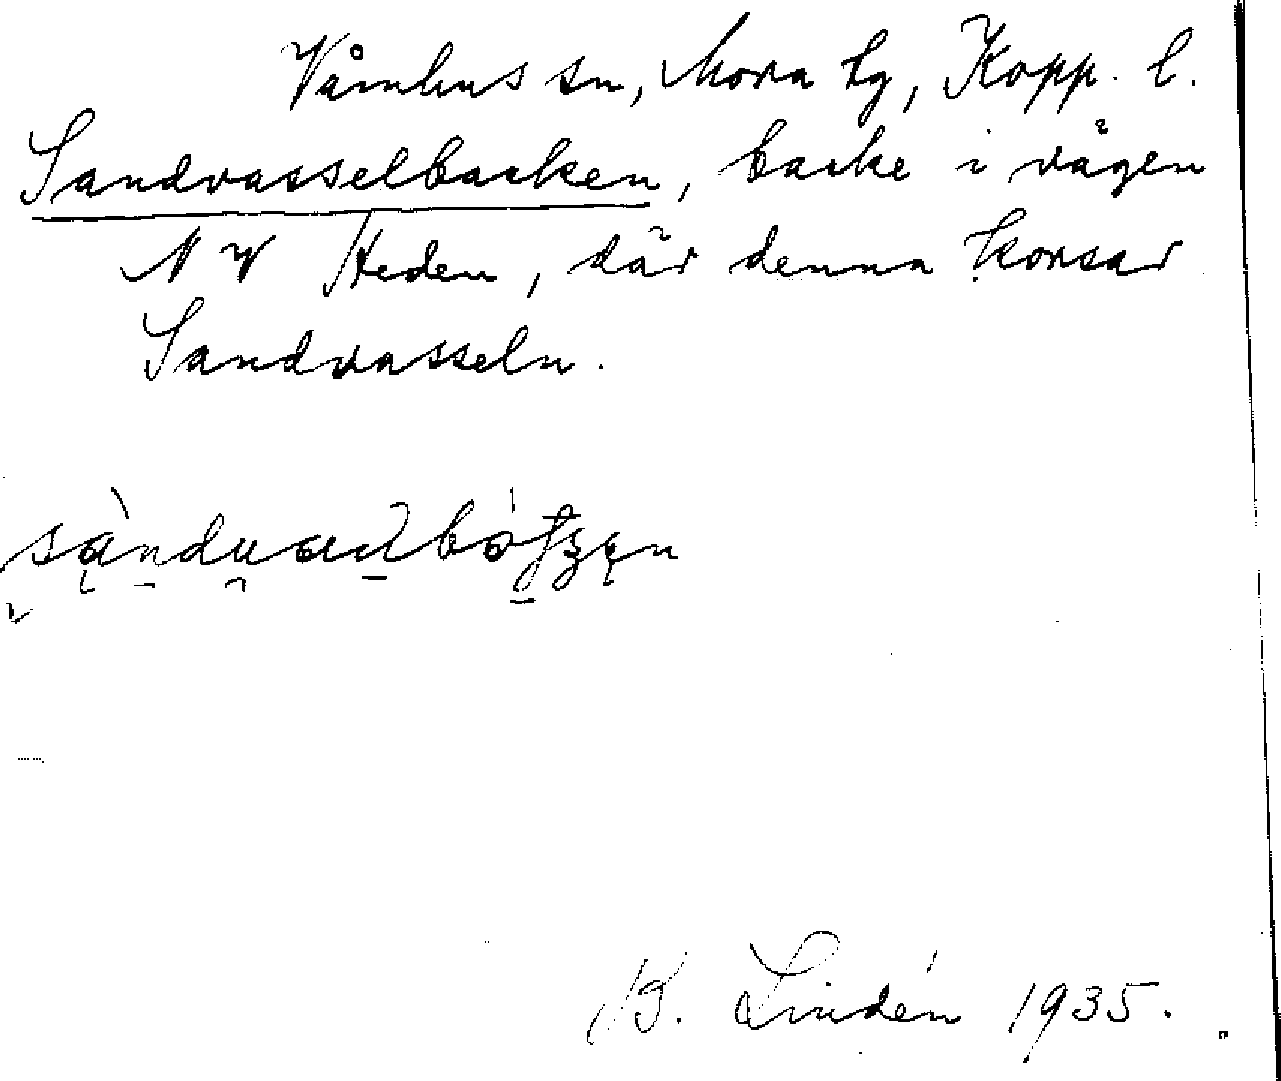 Våmhus sn, Mora tg, Kopp. l.
Sandvasselbacken, backe i vägen
NV Heden, där denna korsar
Sandvasseln.
B. Lindén 1935.